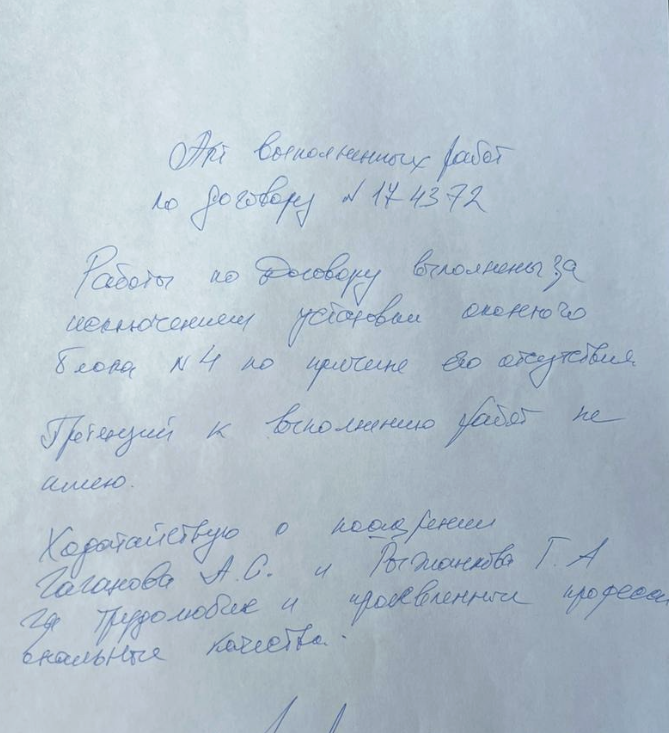 Акт выполненных работ
по договору N 174372
Работы по Договору выполнены за
исключением установки оконного
блока N4 по причине его отсутствия
Претензий к выполнению работ не
имею.
Ходатайствую о поощрении
Гаганова А.С. и Рыжанкова Г.А
за трудолюбие и проявленные професси
ональные качества.